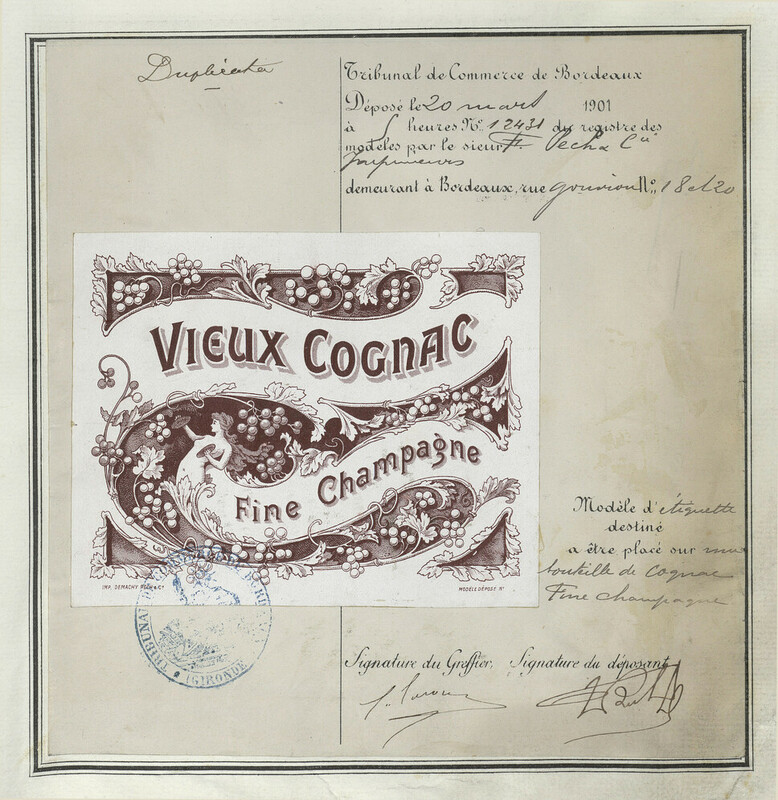 Duplicata
Tribunal de Commerce de Bordeaux
Déposé le 20 mars 1901
à 5 heures No. 12431 du registre des
modèles par le sieur F. Pech & Cie
Imprimeurs
demeurant à Bordeaux, rue Gouvion No. 18 et 20
VIEUX COGNAC
Fine Champagne
IMP. DEMACHY PECH & Cie
MODÈLE DÉPOSÉ No
Modèle d'étiquette
destiné
a être placé sur une
bouteille de Cognac
Fine champagne
TRIBUNAL DE COMMERCE DE BORDEAUX
(GIRONDE)
Signature du Greffier, Signature du déposant